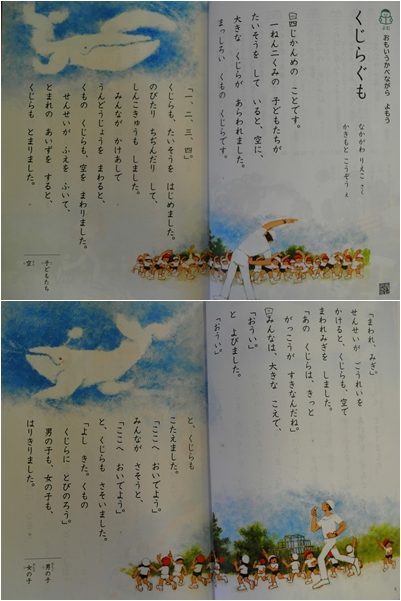 よむ
おもいうかべながら よもう
くじらぐも
なかがわ りえこ さく
かきもと こうぞう え
四じかんめの ことです。
一ねん二くみの 子どもたちが
たいそうを して いると、空に、
大きな くじらが あらわれました。
まっしろい くもの くじらです。
「一、二、三、四。」
くじらも、たいそうを はじめました。
のびたり ちぢんだり して、
しんこきゅうも しました。
みんなが かけあしで
うんどうじょうを まわると、
くもの くじらも、空を まわりました。
せんせいが ふえを ふいて、
とまれの あいずを すると、
くじらも とまりました。
子どもたち
空
「まわれ、みぎ。」
せんせいが ごうれいを
かけると、くじらも、空で
まわれみぎを しました。
「あの くじらは、きっと
がっこうが すきなんだね。」
みんなは、大きな こえで、
「おうい。」
と よびました。
「おうい。」
と、くじらも
こたえました。
「ここへ おいでよう。」
みんなが さそうと、
「ここへ おいでよう。」
と、くじらも さそいました。
「よし きた。くもの
くじらに とびのろう。」
男の子も、女の子も、
はりきりました。
男の子
女の子